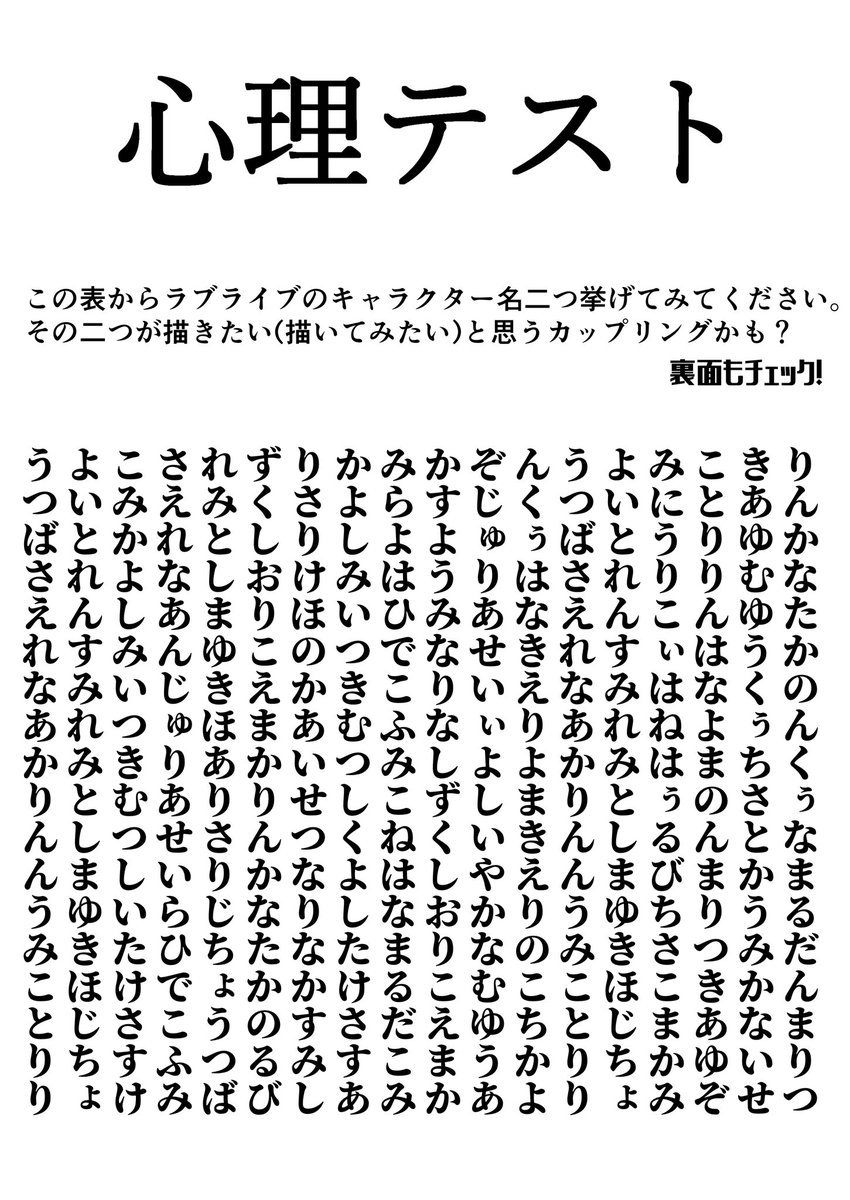 心理テスト
この表からラブライブのキャラクター名二つ挙げてみてください。
その二つが描きたい(描いてみたい)と思うカップリングかも？
裏面もチェック!
りんかなたかのんくぅなまるだんまりつ
きあゆむゆうくぅちさとかうみかないせ
ことりりんはなよまのんまりつきあゆぞ
みにうりこぃはねはぅるびちさこまかみ
よいとれんすみれみとしまゆきほじちょ
うつばさえれなあかりんんうみことりり
んくぅはなきえりよまきえりのこちかよ
ぞじゅりあせいぃよしいやかなむゆうあ
かすようみなりなしずくしおりこえまか
みらよはひでこふみこねはなまるだこみ
かよしみいつきむつしくよしたけさすあ
りさりけほのかあいせつなりなかすみし
ずくしおりこえまかりんかなたかのるび
れみとしまゆきほありさりじちょうつば
さえれなあんじゅりあせいらひでこふみ
こみかよしみいつきむつしいたけさすけ
よいとれんすみれみとしまゆきほじちょ
うつばさえれなあかりんんうみことりり